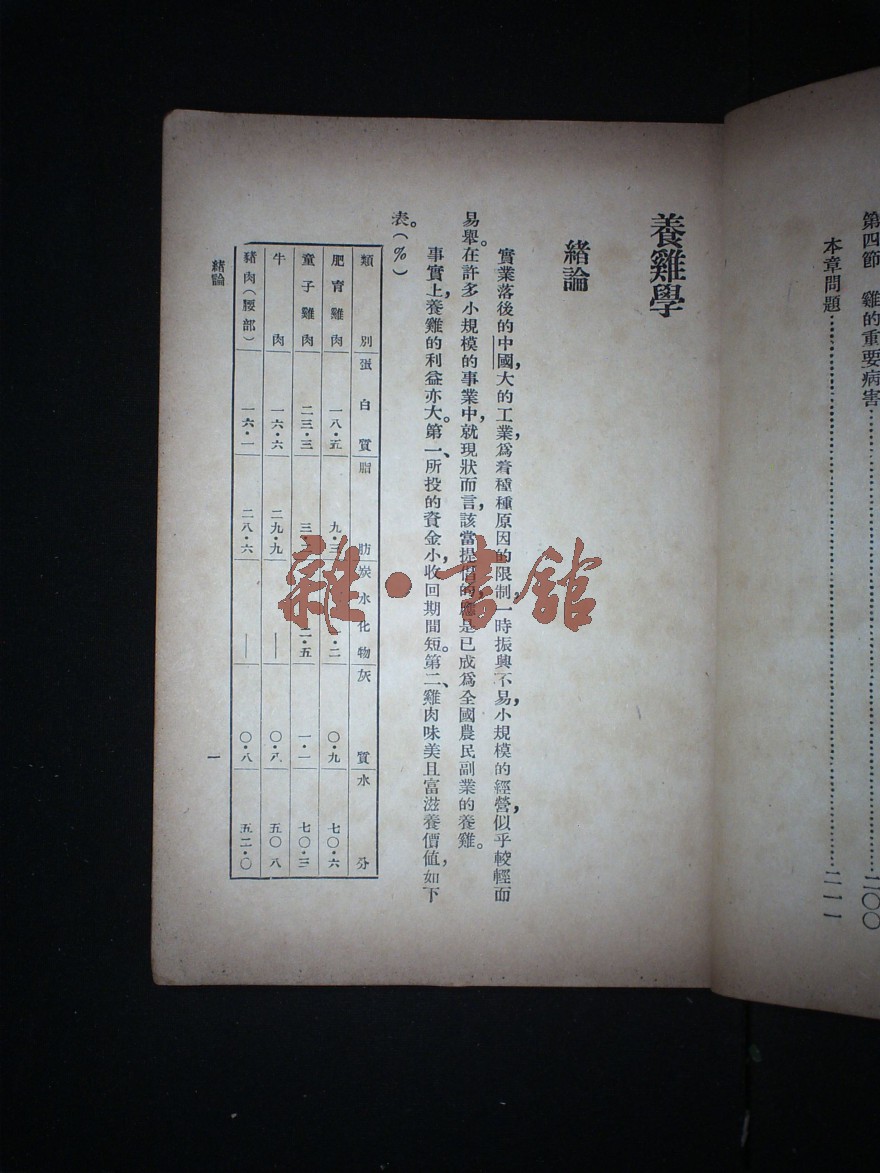 第四節　雞的重要病害……二〇〇
本章問題……二一一
養雞學
緒論
實業落後的中國，大的工業，爲着種種原因的限制一時振興不易，小規模的經營，似乎較輕而
易舉。在許多小規模的事業中，就現狀而言，該當提倡的，應是已成爲全國農民副業的養雞。
事實上，養雞的利益亦大。第一、所投的資金小，收回期間短。第二、雞肉味美且富滋養價值，如下
表。（%）
類別　蛋白質　脂肪　炭水化物　灰質　水分
肥育雞肉　一八·五　九·三　·二　〇·九　七〇·六
童子雞肉　二三·三　三·　二·五　一·一　七〇·三
牛肉　一六·六　二九·九　——　〇·八　五〇·八
豬肉（腰部）　一六·一　二八·六　——　〇·八　五二·〇
緒論
一
雜·書館